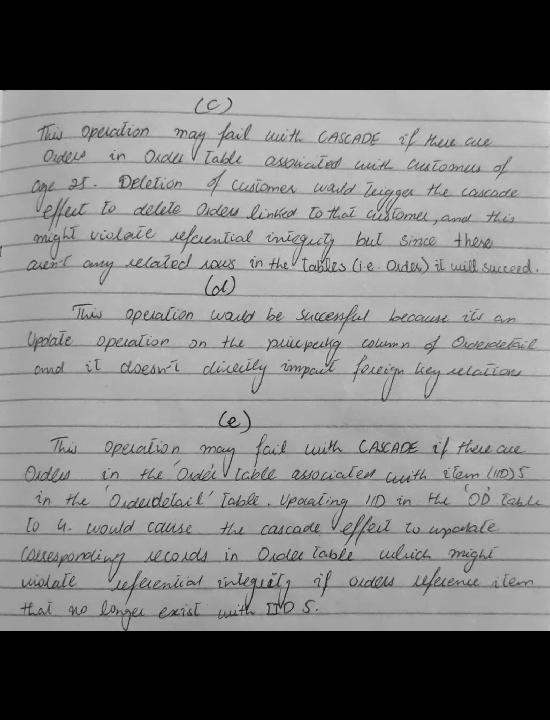 (c)
This operation may fail with CASCADE if there are
Orders in Order Table associated with customers of
age 25. Deletion of customer would trigger the cascade
effect to delete Orders linked to that customer, and this
might violate referential integrity but since there
aren't any related rows in the Tables (i.e. Order) it will succeed.
(d)
This operation would be successful because its an
Update operation on the priceperkg column of Orderdetail
and it doesn't directly impact foreign key relations
(e)
This operation may fail with CASCADE if there are
Orders in the 'Order' table associated with item (IID) 5
in the 'Orderdetail' Table. Updating IID in the 'OD' Table
to 4. would cause the cascade effect to update
corresponding records in Order Table which might
violate referential integrity if orders reference item
that no longer exist with IID 5.